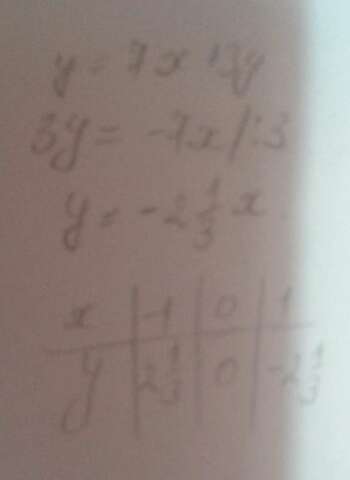 y = 7x + 3y
3y = -7x /:3
y = -2 1/3 x
x | -1 | 0 | 1
y | 2 1/3 | 0 | -2 1/3